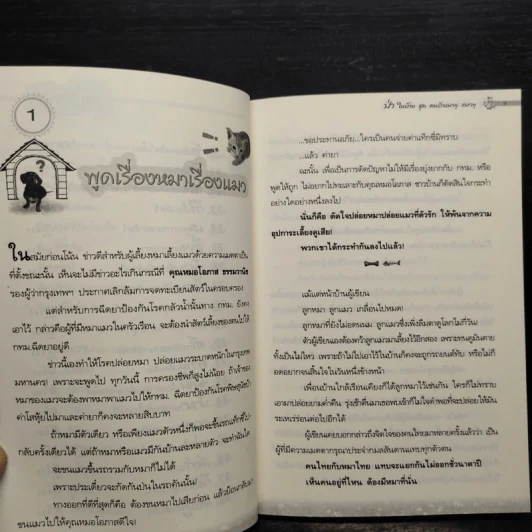 1
?
พูดเรื่องหมาเรื่องแมว
ในสมัยก่อนโน้น ข่าวดีสำหรับผู้เลี้ยงหมาเลี้ยงแมวด้วยความเมตตาเป็น
ที่ตั้งขณะนั้น เห็นจะไม่มีข่าวอะไรเกินกรณีที่ คุณหมอโอภาส ธรรมวานิช
รองผู้ว่ากรุงเทพฯ ประกาศเลิกล้มการจดทะเบียนสัตว์ในครอบครอง
แต่สำหรับการฉีดยาป้องกันโรคกลัวน้ำนั้นทาง กทม. ยังคง
เอาไว้ กล่าวคือผู้ที่มีหมาแมวในครัวเรือน จะต้องนำสัตว์เลี้ยงของตนไปให้
กทม.ฉีดยาอยู่ดี
ข่าวนี้เองทำให้โรคปล่อยหมา ปล่อยแมวระบาดหนักในกรุงเทพ
มหานคร! เพราะจะพูดไป ทุกวันนี้ การครองชีพก็สูงไม่น้อย ถ้าเจ้าของ
หมาของแมวจะต้องพาหมาพาแมวไปให้ กทม. ฉีดยาป้องกันโรคพิษสุนัขบ้า
ค่าโสหุ้ยไปมาและค่ายาก็คงจะหลายสิบบาท
ถ้าหมามีตัวเดียว หรือเพียงแมวตัวหนึ่งก็พอจะขึ้นรถแท็กซี่ไป
กลับครั้งเดียวได้ แต่ถ้าหมาหรือแมวมีกันบ้านละหลายตัว จะทำฉันใด
จะขนแมวขึ้นรถรวมกับหมาก็ไม่ได้
เพราะประเดี๋ยวจะกัดกันป่นในรถคันนั้น!
ทางออกที่ดีที่สุดก็คือ ต้องขนหมาไปเสียก่อน แล้วย้อนกลับมา
ขนแมวไปให้คุณหมอโอภาสดีใจ!
...ขอประทานอภัย...ใครเป็นคนจ่ายค่าแท็กซี่มิทราบ
...แล้ว ค่ายา
ฉะนั้น เพื่อเป็นการตัดปัญหาไม่ให้มีเรื่องยุ่งยากกับ กทม. หรือ
พูดให้ถูก ไม่อยากไปทะเลาะกับคุณหมอโอภาส ชาวบ้านก็ตัดสินใจกระทำ
อย่างใดอย่างหนึ่งลงไป
นั่นก็คือ ตัดใจปล่อยหมาปล่อยแมวที่ตัวรัก ให้พ้นจากความ
อุปการะเลี้ยงดูเสีย!
พวกเขาได้กระทำกันลงไปแล้ว!
แม้แต่หน้าบ้านผู้เขียน
ลูกหมา ลูกแมว เกลื่อนไปหมด!
ลูกหมาก็ยังไม่อดนม ลูกแมวซึ่งเพิ่งลืมตาดูโลกไม่กี่วัน
ตัวผู้เขียนเองต้องคว้าลูกแมวมาเลี้ยงไว้อีกสอง เพราะทนดูมันตาย
ทั้งเป็นไม่ไหว เพราะถ้าไม่ไปเอาไว้ในบ้านก็คงจะถูกรถยนต์ทับ หรือไม่ก็
อดอยากจนสิ้นใจในวันหนึ่งข้างหน้า
เพื่อนบ้านใกล้เรือนเคียงก็ได้ลูกหมาไว้เช่นกัน ใครก็ไม่ทราบ
เอามาปล่อยยามค่ำคืน รุ่งเช้าตื่นมาเธอพบเข้าก็ไม่ใจดำพอที่จะปล่อยให้มัน
ระเหเร่ร่อนต่อไปอีกได้
ผู้เขียนเคยบอกกล่าวถึงจิตใจของคนไทยมาหลายครั้งแล้วว่า เป็น
ผู้ที่มีความเมตตากรุณาประจำกมลสันดานแทบทุกตัวตน
คนไทยกับหมาไทย แทบจะแยกกันไม่ออกชั่วนาตาปี
เห็นคนอยู่ที่ไหน ต้องมีหมาที่นั่น